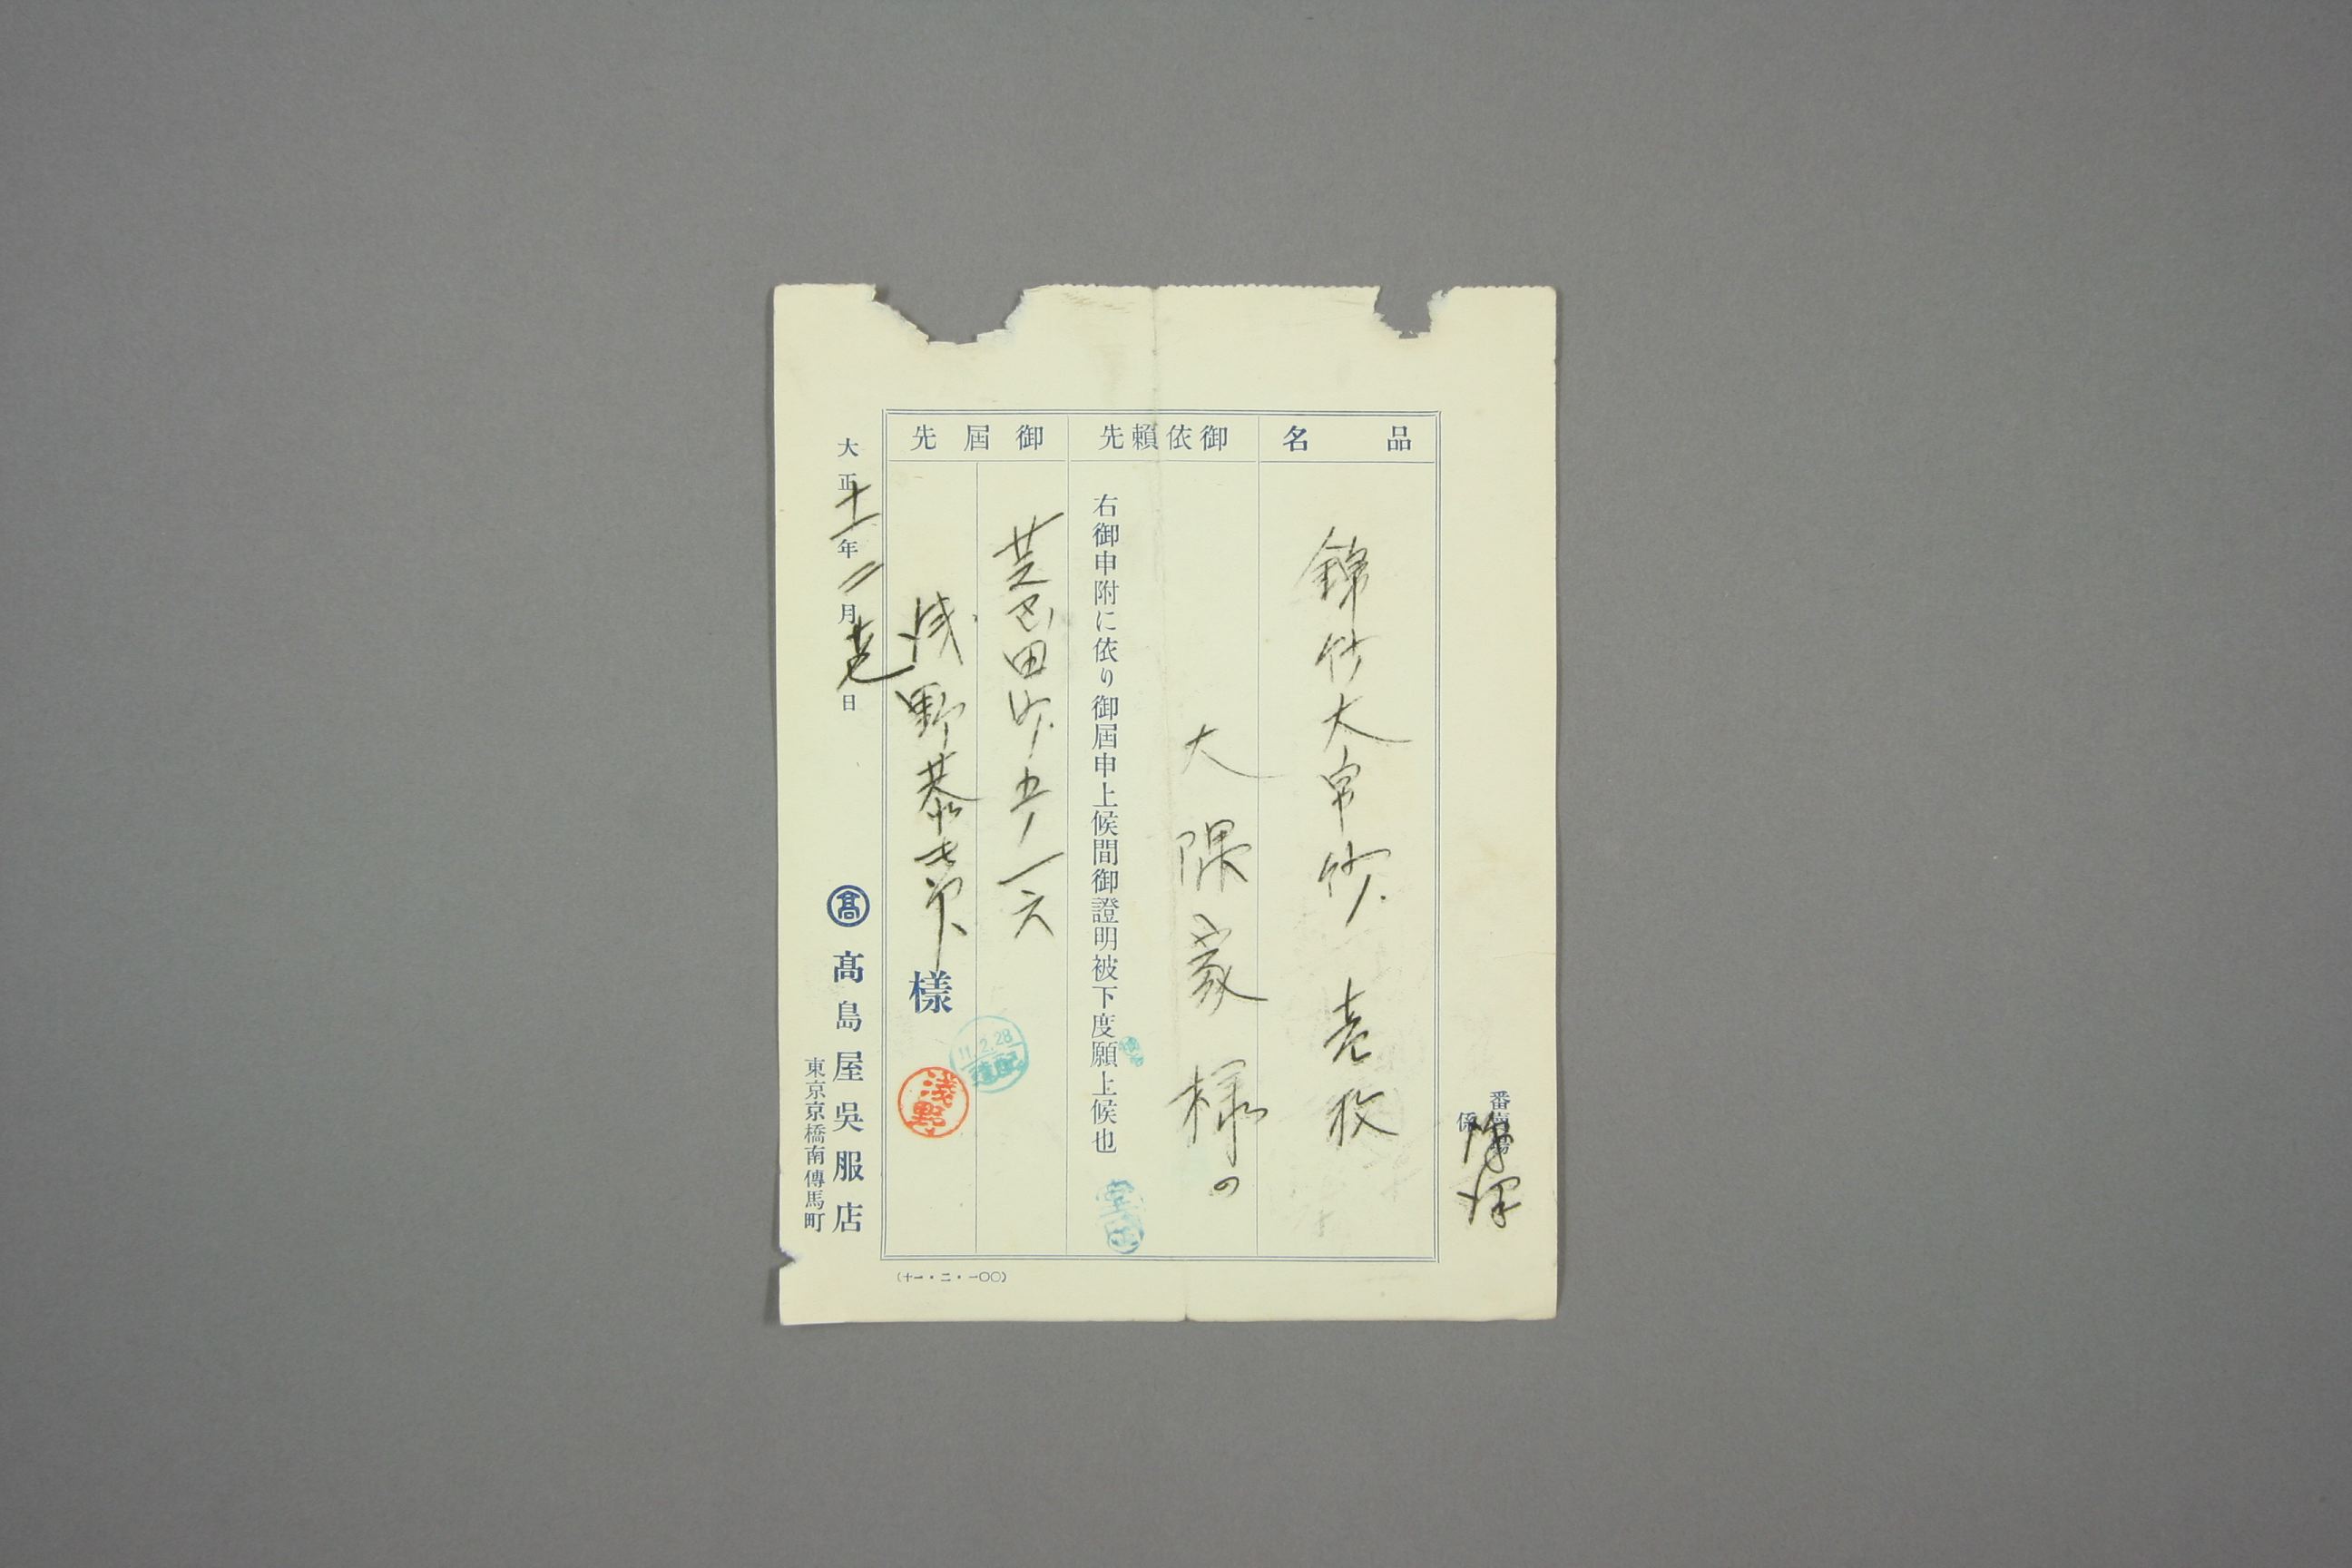 番
係
品名
錦紗大帛紗 壱枚
御依頼先
大隈家様の
右御申附に依り御屆申上候間御證明被下度願上候也
御屆先
芝区田町五ノ一六
浅野泰
様
浅野
11.2.28
大正十一年二月 日
髙
髙島屋吳服店
東京京橋南傳馬町
(十一・二・一〇〇)